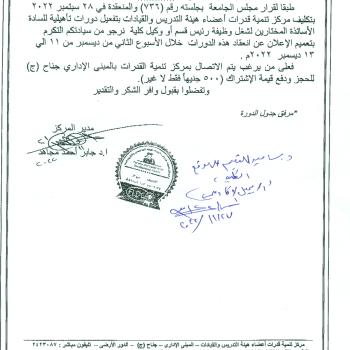 طبقا لقرار مجلس الجامعة بجلسته رقم (٧٣٦) والمنعقدة في ٢٨ سبتمبر ٢٠٢٢
بتكليف مركز تنمية قدرات أعضاء هيئة التدريس والقيادات بتفعيل دورات تأهيلية للسادة
الأساتذة المختارين لشغل وظيفة رئيس قسم أو وكيل كلية نرجو من سيادتكم التكرم
بتعميم الإعلان عن انعقاد هذه الدورات خلال الأسبوع الثاني من ديسمبر من ١١ الي
١٣ ديسمبر ٢٠٢٢م.
فعلى من يرغب يتم الاتصال بمركز تنمية القدرات بالمبنى الإداري جناح (ج)
للحجز ودفع قيمة الإشتراك (٥٠٠ جنيهاً فقط لا غير).
وتفضلوا بقبول وافر الشكر والتقدير
*مرافق جدول الدورة
مدير المركز
ا.د جابر أحمد مجاهد
مركز تنمية قدرات أعضاء هيئة التدريس والقيادات – المبنى الإداري – جناح (ج) – الدور الأرضى – تليفون مباشر : ٢٤٢٣٠٨٧